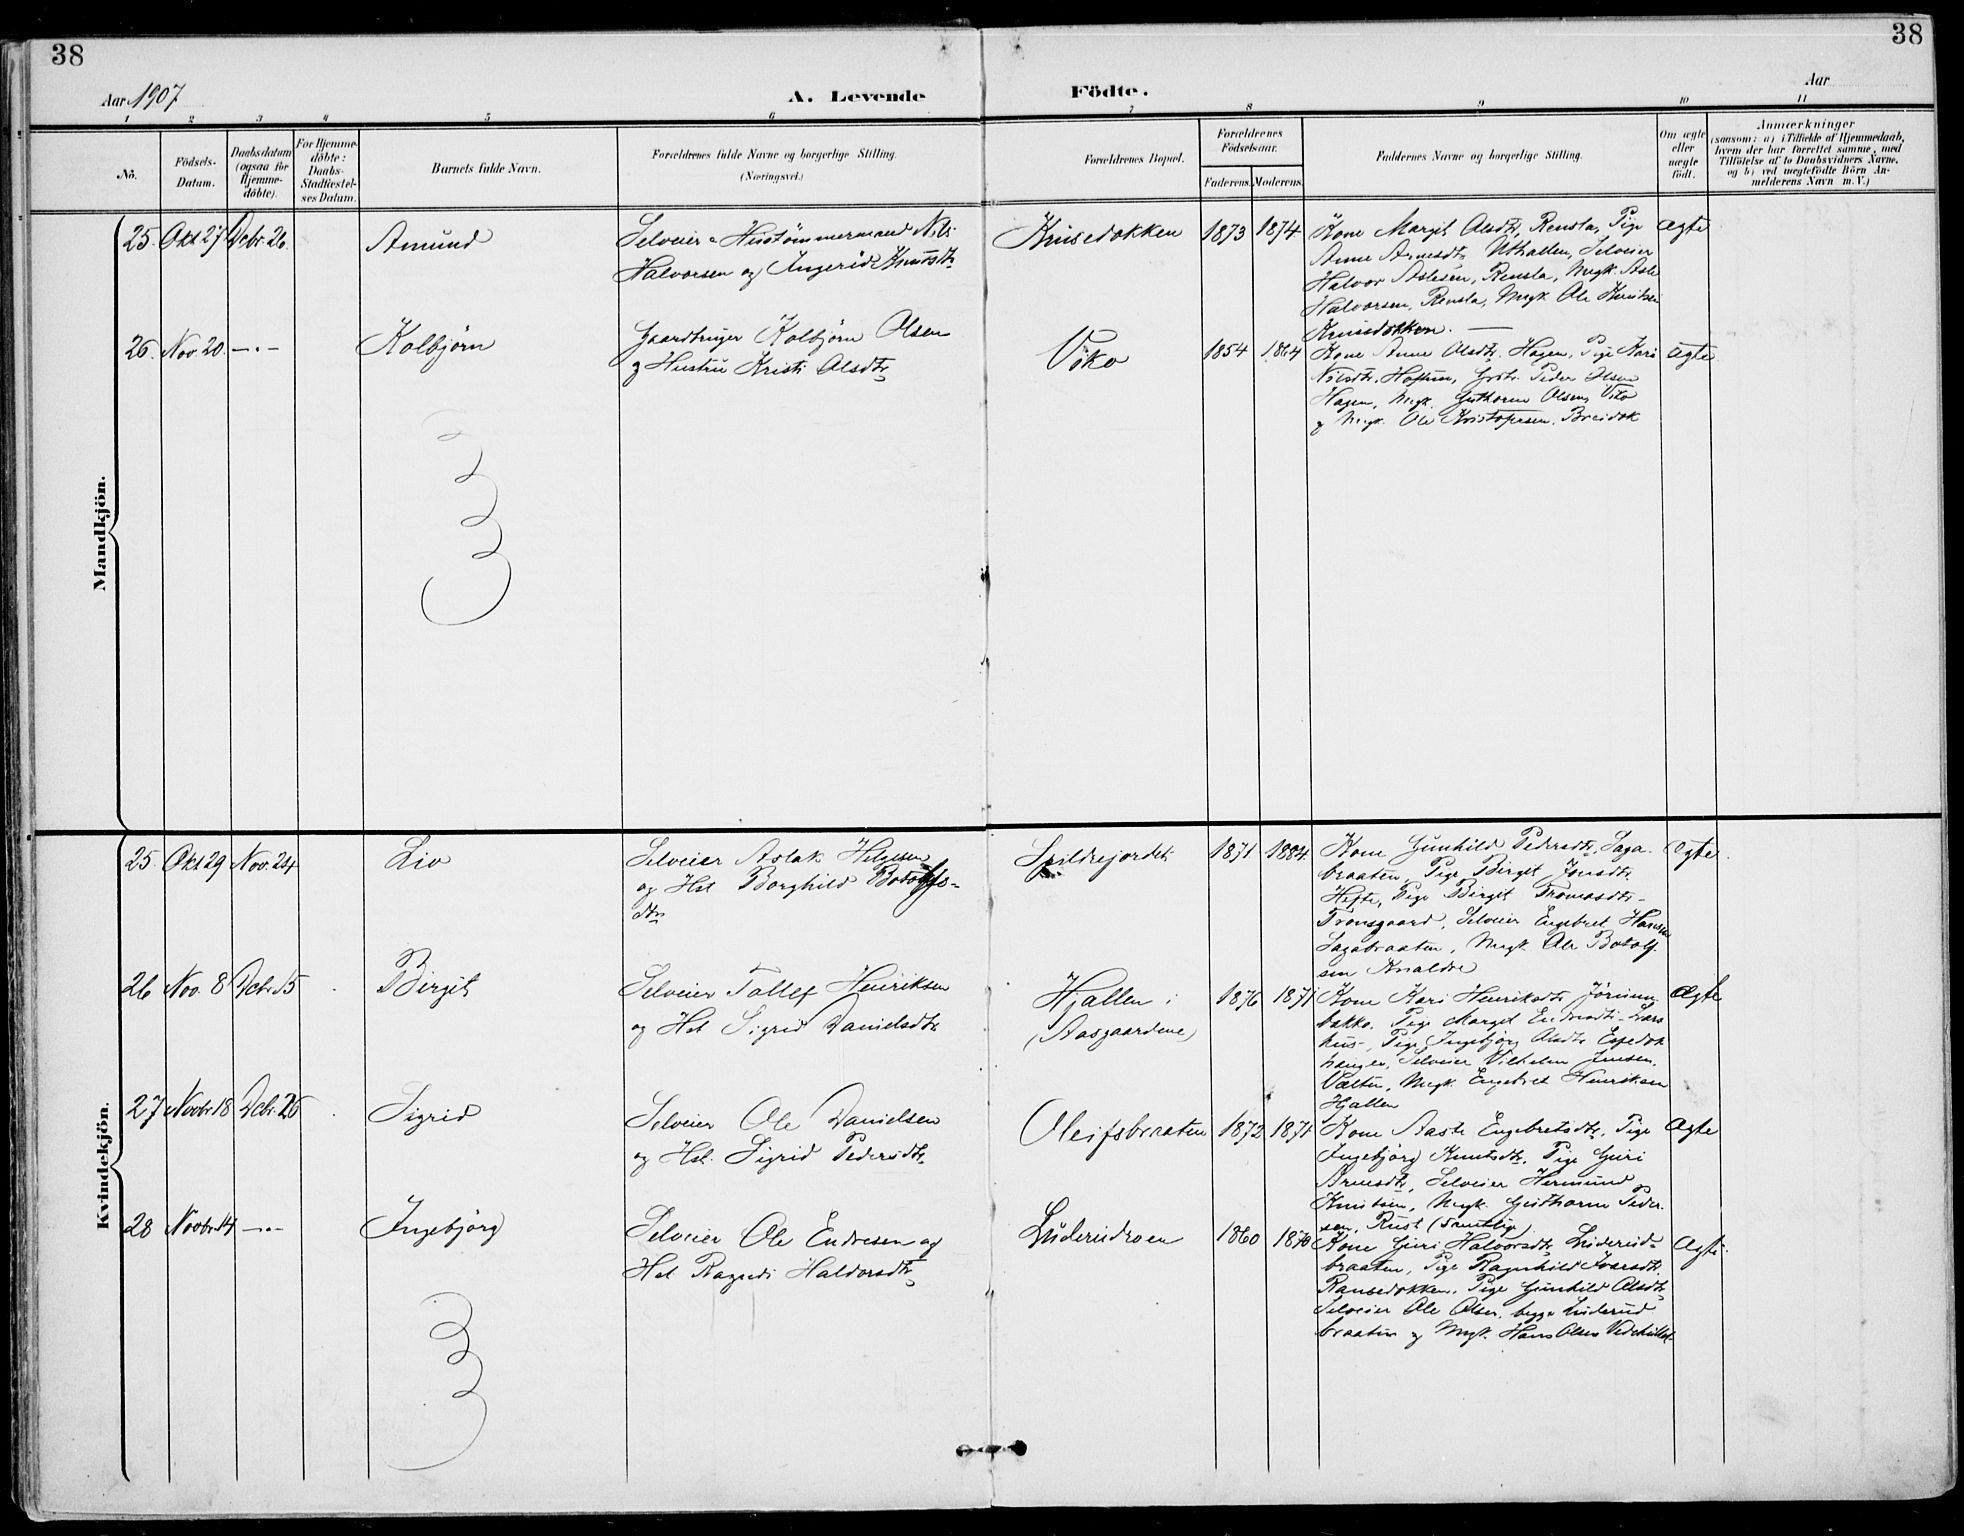 38
38
Aar 1907
A. Levende
Födte.
Aar
1 2 3 4 5 6 7 8 9 10 11
Nö.
Födsels-
Datum.
Daabsdatum
(ogsaa for
Hjemme-
döbte).
For Hjemme-
döbte:
Daabs-
Stadfæstel-
ses Datum.
Barnets fulde Navn.
Forældrenes fulde Navne og borgerlige Stilling.
(Næringsvei.)
Forældrenes Bopæl.
Forældrenes
Födselsaar.
Faderens. Moderens.
Faddernes Navne og borgerlige Stilling.
Om ægte
eller
uægte
födt.
Anmærkninger
(saasom: a) i Tilfælde af Hjemmedaab,
hvem der har forrettet samme, med
Tilföielse af to Daabsvidners Navne,
og b) ved uægtefödte Börn An-
melderens Navn m. V.)
Mandkjön.
25. Okt 27 Dcbr. 26. Amund
Selveier Hustömmermand Nils
Halvorsen og Ingerid Knutsdtr
Kruсedokken 1873 1874
Kone Margit Olsdtr, Rensla, Pige
Anne Arnesdtr Uthallen, Selveier
Halvor Aslesen, Rensla, Ungk. Asle
Halvorsen, Rensla, Ungk. Ole Knutsen
Krusedokken. —
ægte
26. Nov. 20. —„— Kolbjörn
Gaardbruger Kolbjörn Olsen
og Hustru Kristi Olsdtr
Viko 1854 1864
Kone Anne Olsdtr. Hagen, Pige Kari
Nilsdtr. Hoftun, Gbr. Peder Olsen
Hagen, Ungk. Guthorm Olsen, Viko
og Ungk. Ole Kristofersen. Breidok
ægte
Kvindekjön.
25. Okt 29 Nov. 24 Liv
Selveier Aslak Helgesen
og Hst Borghild Botolfs-
dtr
Spildrejordet 1871 1884
Kone Gunhild Pedersdtr, Saga-
braaten, Pige Birgit Jonsdtr
Hefte, Pige Birgit Tromasdtr-
Tronsgaard, Selveier Engebret Hansen
Sagabraaten, Ungk. Ole Botolf-
sen Knaldre
ægte
26 Nov. 8 Dcbr. 15 Birgit
Selveier Tollef Henriksen
og Hst Sigrid Danielsdtr
Hjallen i
(Aasgaardene)
1876 1871
Kone Kari Henriksdtr Jörun-
bakko, Pige Margit Endresdtr- Lars-
hus-, Pige Ingebjörg Olsdtr Espedok
hangen, Selveier Vilhelm Jensen.
Vælten, Ungk. Engebret Henriksen
Hjallen
ægte
27 Novbr. 18 Dcbr. 26 Sigrid
Selveier Ole Danielsen
og Hst. Sigrid Pedersdtr
Oleifsbraaten 1872 1871
Kone Aaste Engebretsdtr, Pige
Ingebjörg Knutsdtr, Pige Guri
Arnesdtr, Selveier Hermund
Knutsen, Ungk. Guthorm Peder-
sen, Rust (samtlige)
ægte
28 Novbr. 14 —„— Ingebjörg
Selveier Ole Endresen og
Hst Ragndi Haldorsdtr
Luderudroen 1860 1870
Kone Guri Halvorsdtr Luderud-
braaten, Pige Ragnhild Ivarsdtr.
Ransedokken. Pige Gunhild Olsdtr
Selveier Ole Olsen, begge Luderud
braaten og Ungk. Hans Olsen
ægte